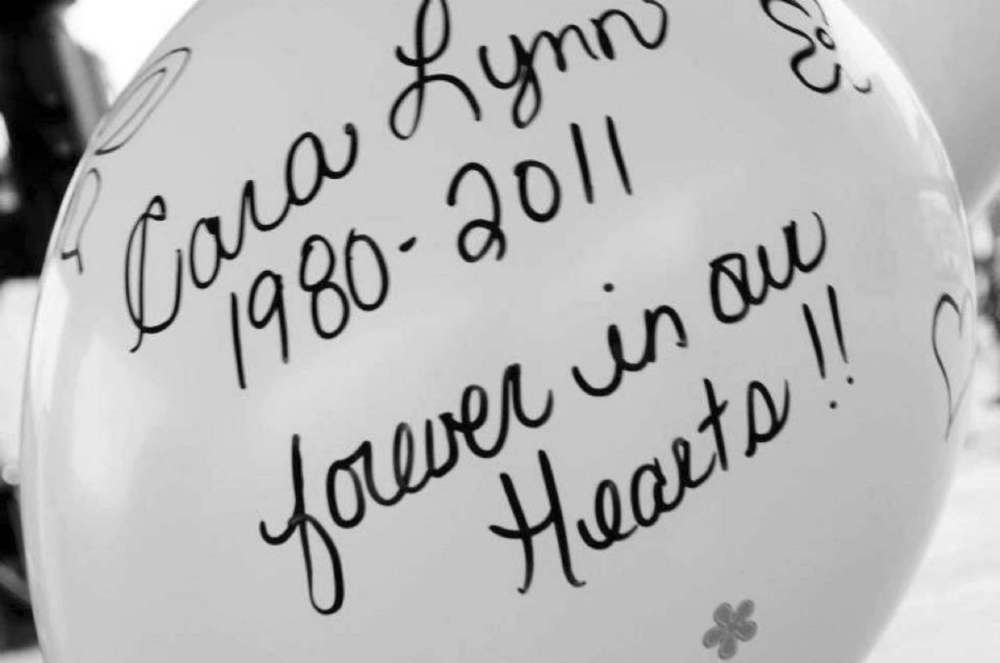 Cara Lynn
1980-2011
forever in our
Hearts!!